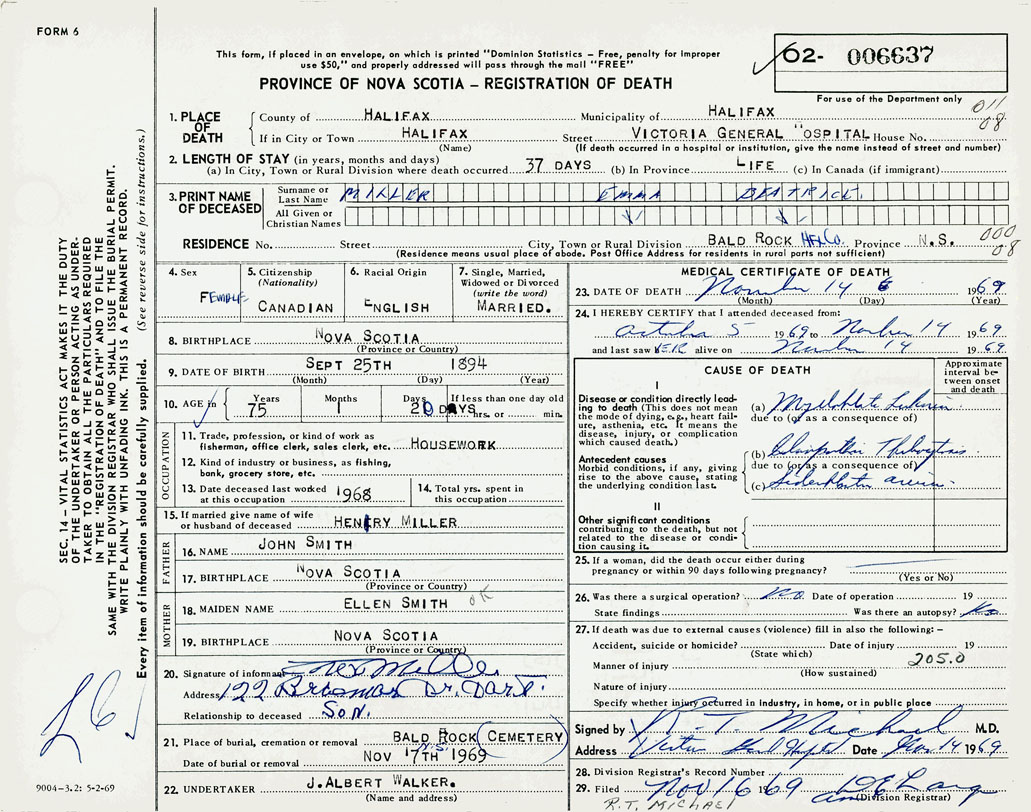 FORM 6
This form, if placed in an envelope, on which is printed "Dominion Statistics – Free, penalty for improper
use $50," and properly addressed will pass through the mail "FREE"
PROVINCE OF NOVA SCOTIA – REGISTRATION OF DEATH
62- 006637
For use of the Department only
011
08
1. PLACE OF DEATH
County of HALIFAX Municipality of HALIFAX
If in City or Town HALIFAX Street VICTORIA GENERAL HOSPITAL House No.
(Name) (If death occurred in a hospital or institution, give the name instead of street and number)
2. LENGTH OF STAY (in years, months and days)
(a) In City, Town or Rural Division where death occurred 37 DAYS (b) In Province LIFE (c) In Canada (if immigrant)
3. PRINT NAME OF DECEASED
Surname or Last Name MILLER EMMA BEATRICE
All Given or Christian Names
RESIDENCE No. Street City, Town or Rural Division BALD ROCK HFX Co. Province N.S. 000
08
(Residence means usual place of abode. Post Office Address for residents in rural parts not sufficient)
4. Sex FEMALE
5. Citizenship (Nationality) CANADIAN
6. Racial Origin ENGLISH
7. Single, Married, Widowed or Divorced (write the word) MARRIED.
8. BIRTHPLACE NOVA SCOTIA
(Province or Country)
9. DATE OF BIRTH SEPT 25TH 1894
(Month) (Day) (Year)
10. AGE in Years 75 Months 1 Days 20 DAYS If less than one day old hrs. or min.
OCCUPATION
11. Trade, profession, or kind of work as
fisherman, office clerk, sales clerk, etc. HOUSEWORK
12. Kind of industry or business, as fishing,
bank, grocery store, etc.
13. Date deceased last worked at this occupation 1968
14. Total yrs. spent in this occupation
15. If married give name of wife
or husband of deceased HENRY MILLER
FATHER
16. NAME JOHN SMITH
17. BIRTHPLACE NOVA SCOTIA
(Province or Country)
MOTHER
18. MAIDEN NAME ELLEN SMITH OK
19. BIRTHPLACE NOVA SCOTIA
(Province or Country)
20. Signature of informant
Address 122 Dr. Dart.
Relationship to deceased SON.
21. Place of burial, cremation or removal BALD ROCK (CEMETERY)
N.S.
Date of burial or removal NOV 17TH 1969
22. UNDERTAKER J.ALBERT WALKER.
(Name and address)
MEDICAL CERTIFICATE OF DEATH
23. DATE OF DEATH November 14 1969
(Month) (Day) (Year)
24. I HEREBY CERTIFY that I attended deceased from:
October 5 1969 to November 14 1969
and last saw HER alive on November 14 1969
CAUSE OF DEATH
Approximate interval between onset and death
I
Disease or condition directly lead-
ing to death (This does not mean
the mode of dying, e.g., heart fail-
ure, asthenia, etc. It means the
disease, injury, or complication
which caused death.)
(a) Myeloblastic Leukemia
due to (or as a consequence of)
Antecedent causes
Morbid conditions, if any, giving
rise to the above cause, stating
the underlying condition last.
(b)
due to (or as a consequence of)
(c) Sideroblastic anemia
II
Other significant conditions
contributing to the death, but not
related to the disease or condi-
tion causing it.
25. If a woman, did the death occur either during
pregnancy or within 90 days following pregnancy?
(Yes or No)
26. Was there a surgical operation? No Date of operation 19
State findings Was there an autopsy? No
27. If death was due to external causes (violence) fill in also the following: –
Accident, suicide or homicide? Date of injury 19
(State which) 205.0
Manner of injury
(How sustained)
Nature of injury
Specify whether injury occurred in Industry, in home, or in public place
Signed by R. T. Michael M.D.
Address Victoria Gen Hospital Date Nov 14 1969
28. Division Registrar's Record Number
29. Filed Nov 16 1969
(Division Registrar)
R.T. MICHAEL
SEC. 14 – VITAL STATISTICS ACT MAKES IT THE DUTY
OF THE UNDERTAKER OR PERSON ACTING AS UNDER-
TAKER TO OBTAIN ALL THE PARTICULARS REQUIRED
IN THE "REGISTRATION OF DEATH" AND TO FILE THE
SAME WITH THE DIVISION REGISTRAR WHO SHALL ISSUE THE BURIAL PERMIT.
WRITE PLAINLY WITH UNFADING INK. THIS IS A PERMANENT RECORD.
Every item of information should be carefully supplied. (See reverse side for instructions.)
9004-3.2: 5-2-69